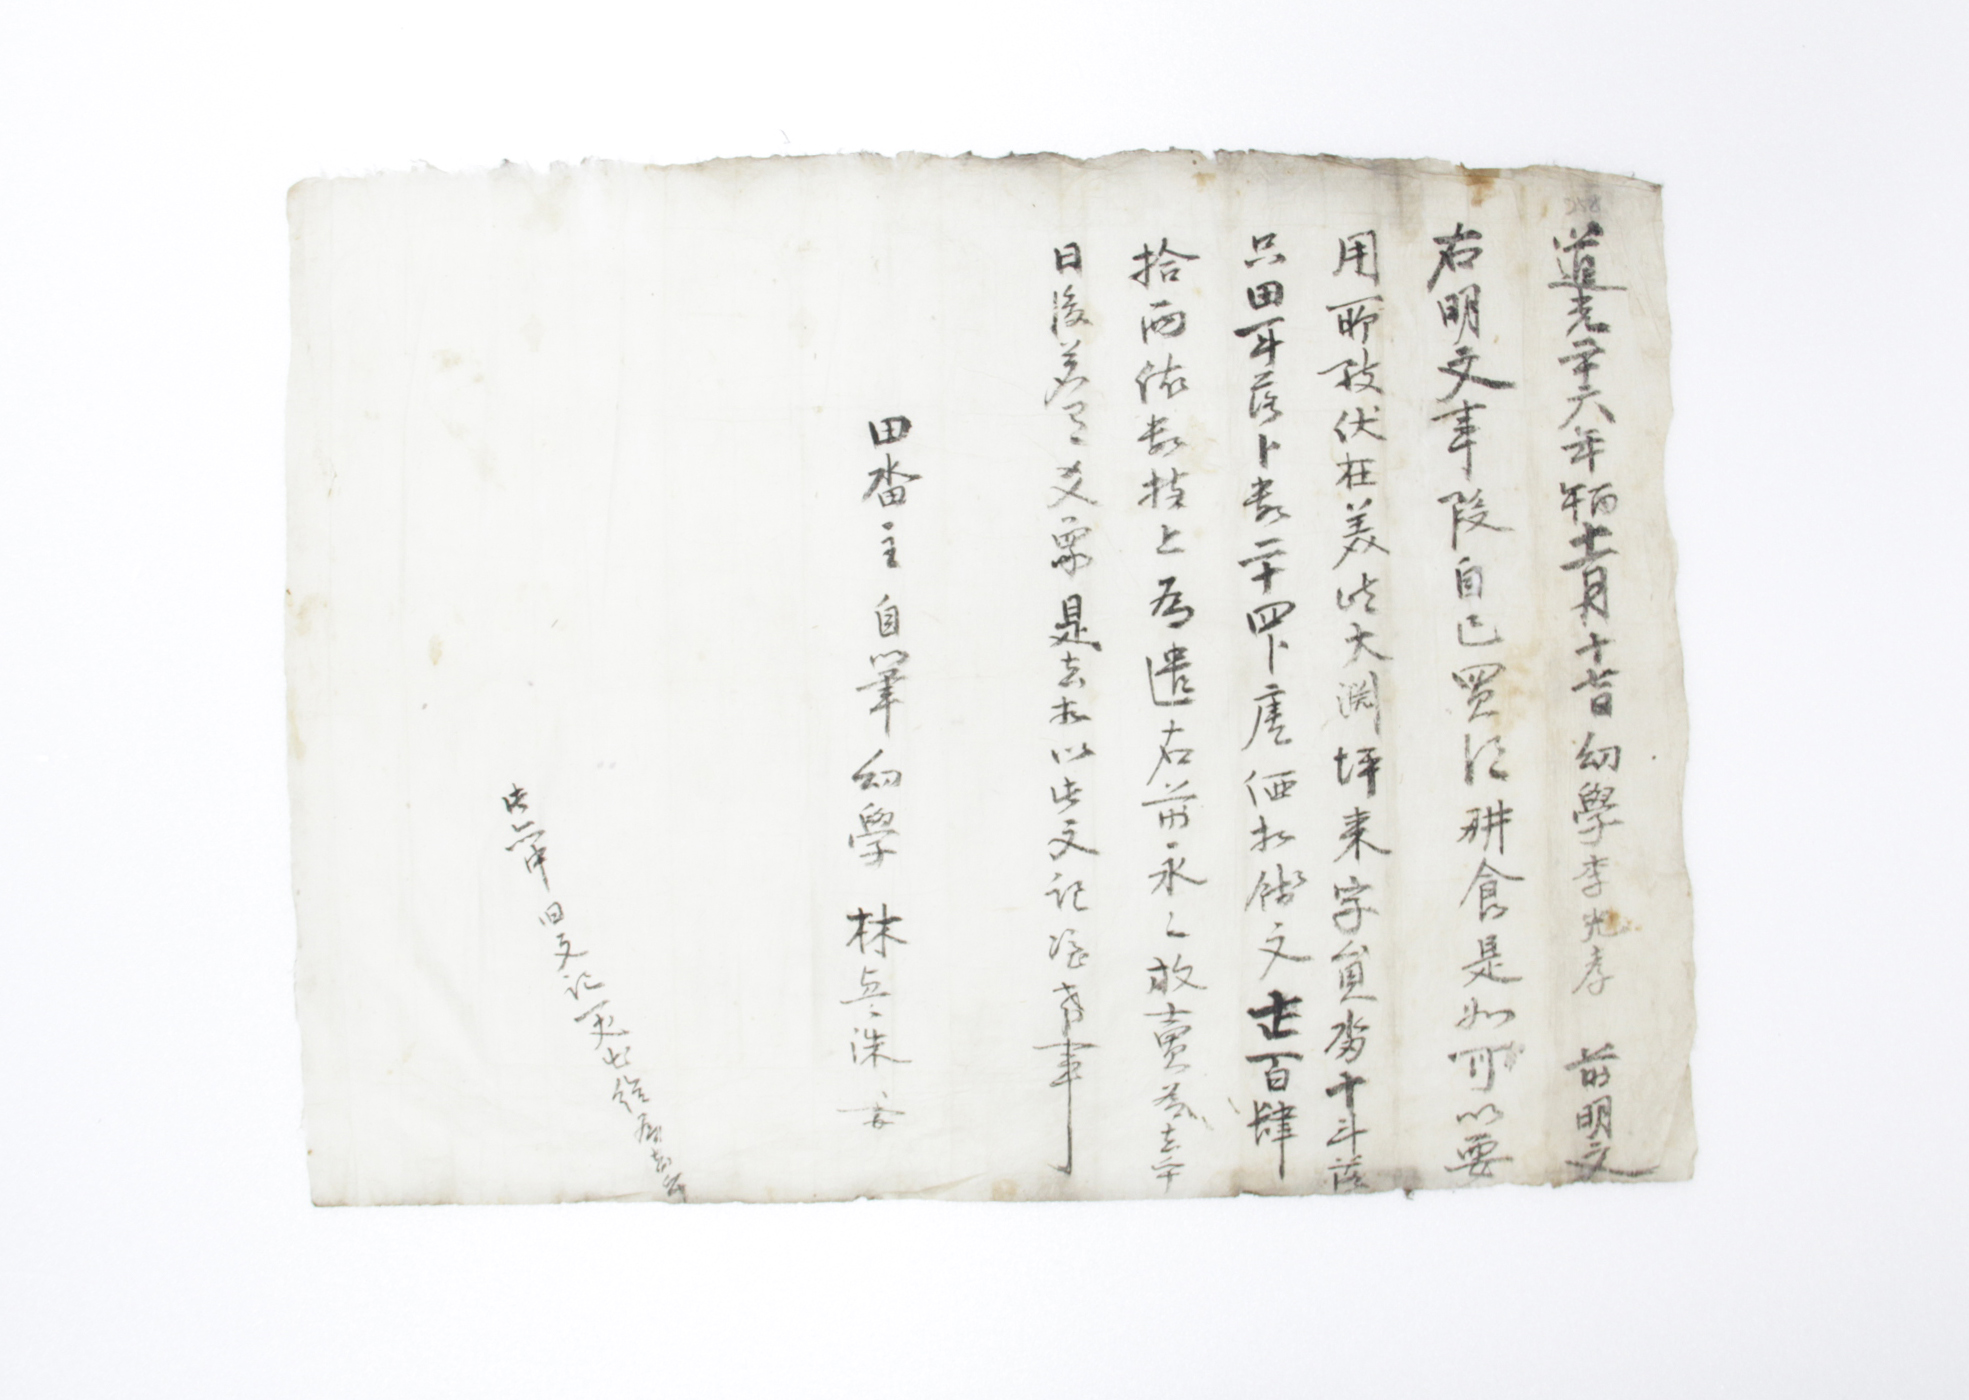 道光二十六年丙午十二月十七日幼學李光彦 前明文
右明文事段自己買得耕食是如可以要
用所致伏在美峙大淵坪来字員畓十斗落
只田一斗落卜數二十四卜庫価折錢文壱百肆
拾両依數捧上為遣右前永永放賣為去乎
日後若有爻象是去等以此文記憑考事
田畓主自筆幼學 林 洙
此等中旧文記